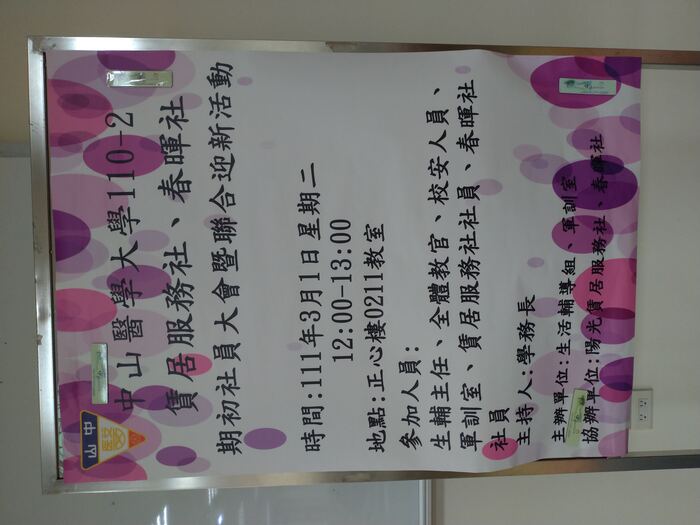 中山醫學大學110-2
賃居服務社、春暉社
期初社員大會暨聯合迎新活動
時間:111年3月1日星期二
12:00-13:00
地點:正心樓0211教室
參加人員:
生輔主任、全體教官、校安人員、
軍訓室、賃居服務社社員、春暉社
社員
主持人:學務長
主辦單位:生活輔導組、軍訓室
協辦單位:陽光賃居服務社、春暉社
中山
醫